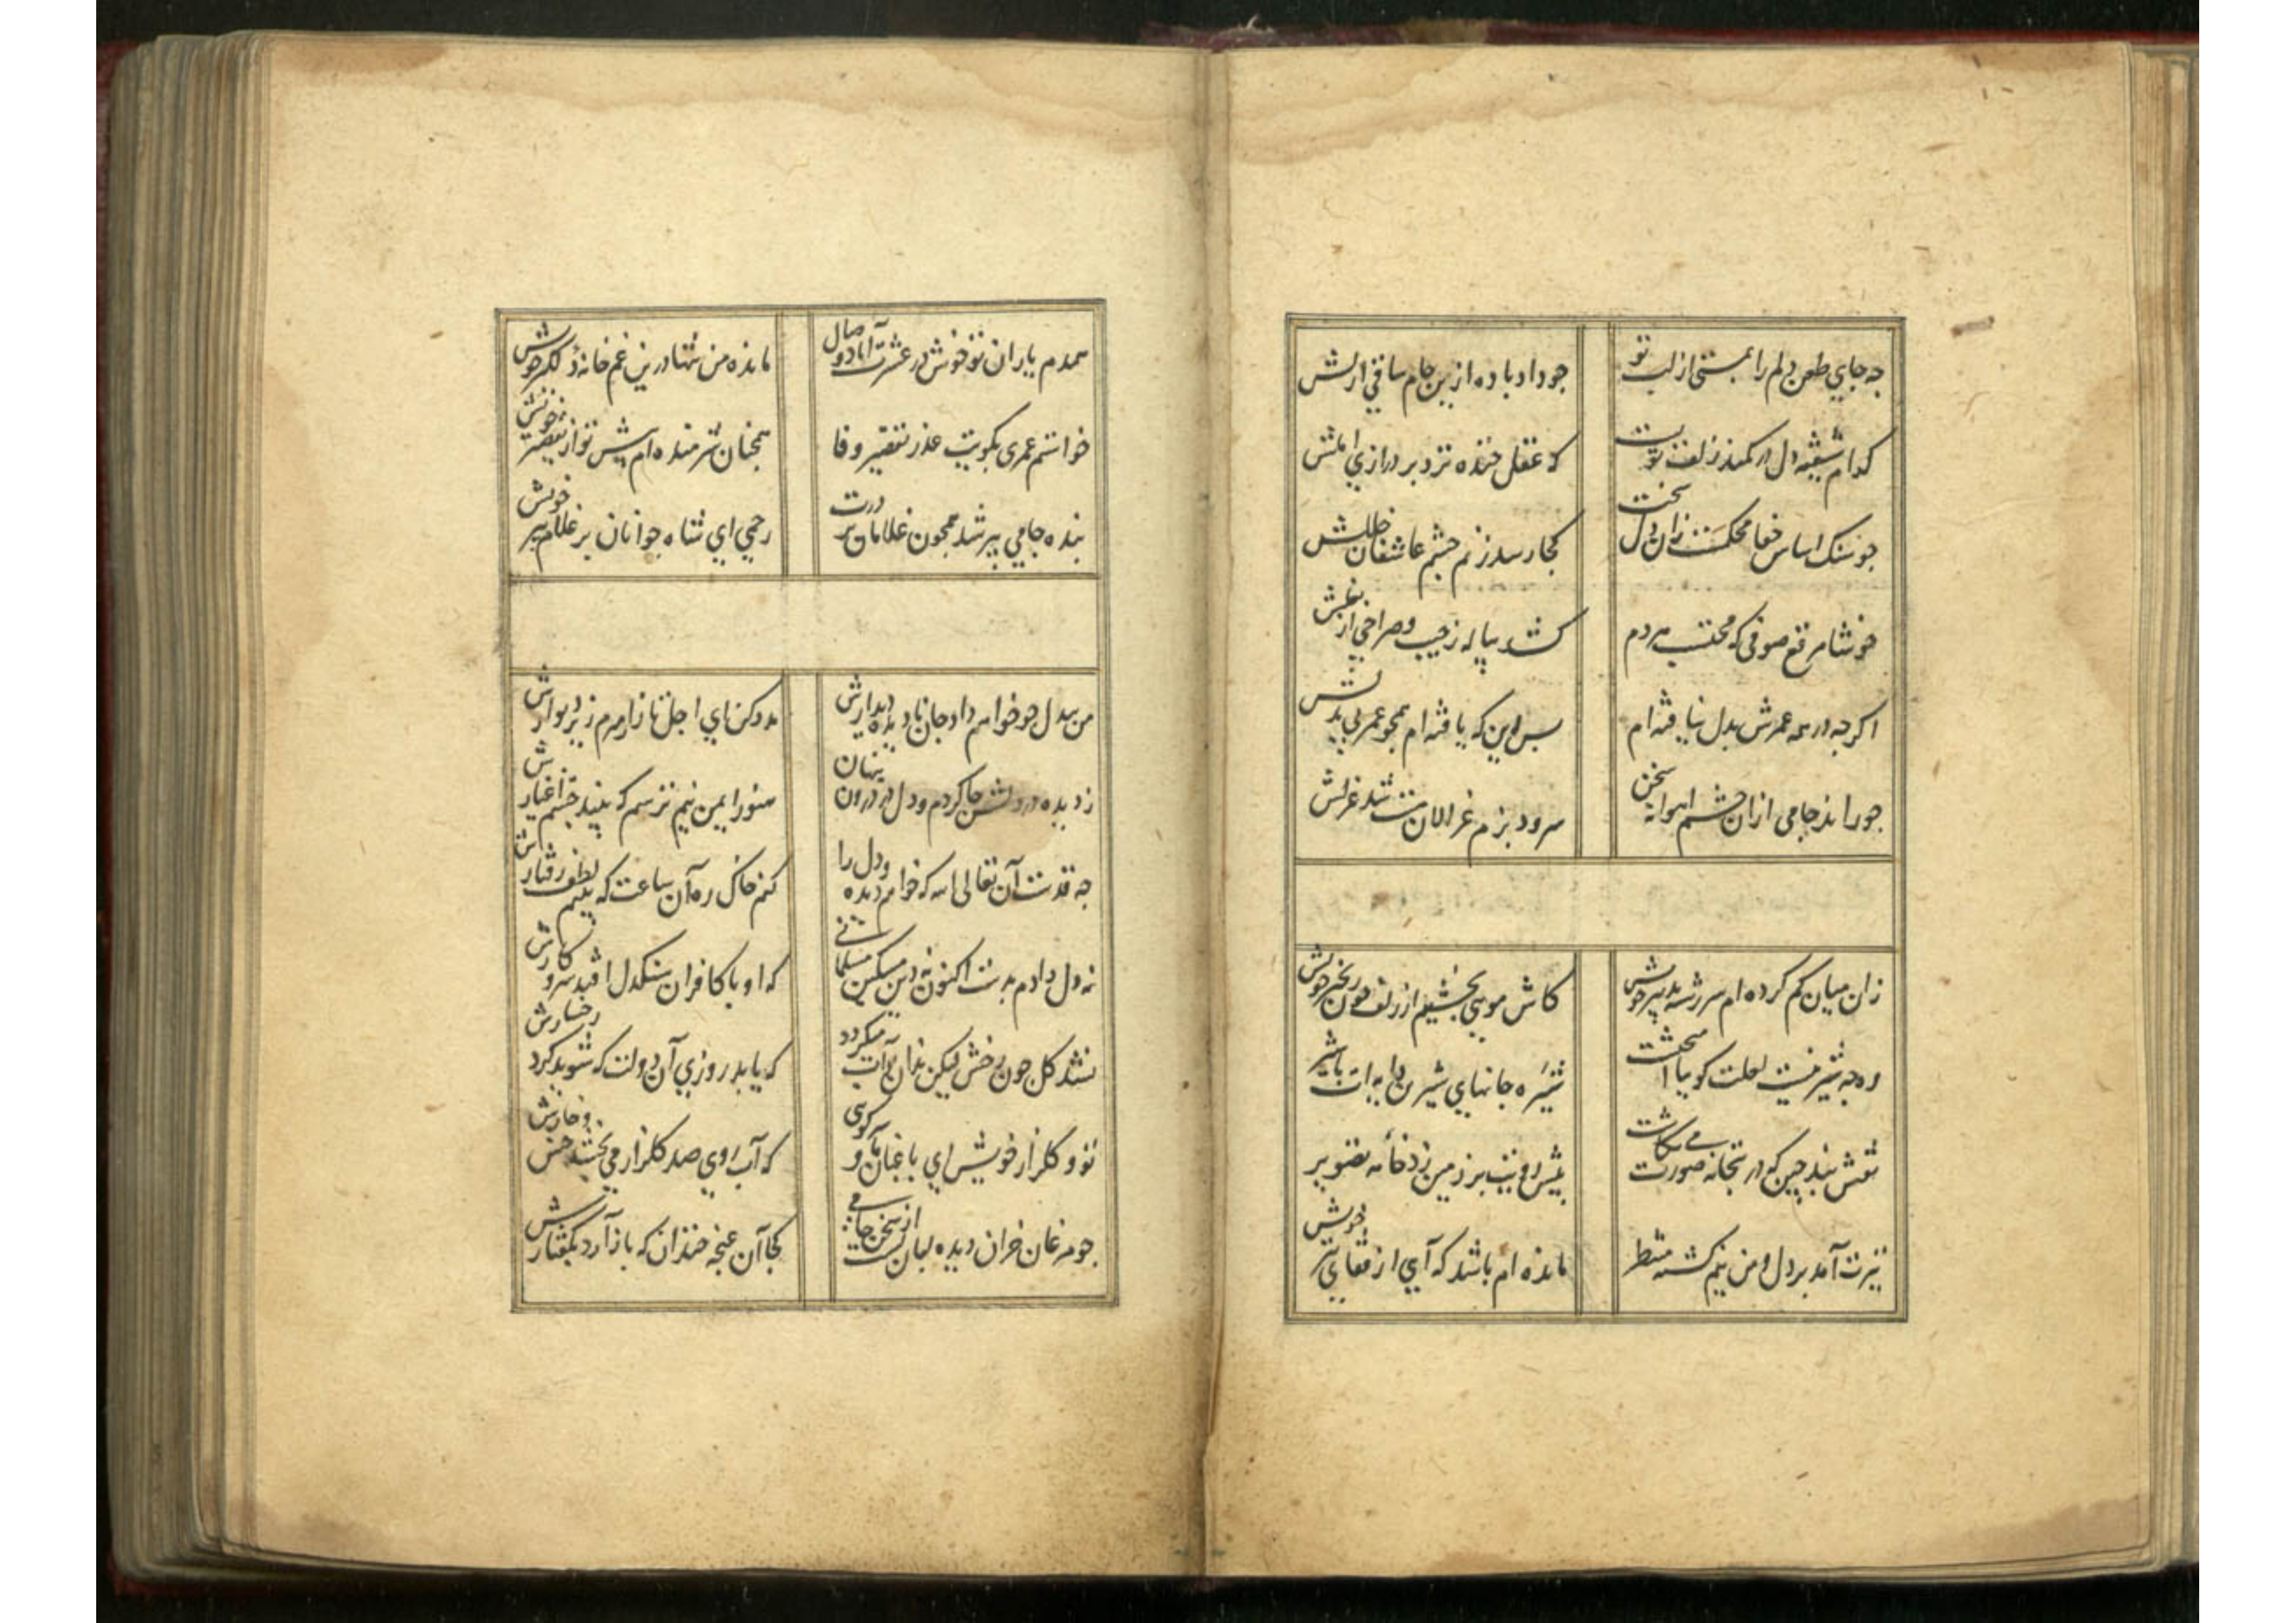 چه جای طعن دلم را بمستی از لب تو
چو داد باده ازین جام ساقی ازلش
کدام شیفته دل در کمند زلف تو بست
که عقل خنده نزد بر درازی املش
چو سنک اساس جفا محکمست زان دل سخت
کجا رسد ز نم چشم عاشقان خللش
خوشا مرقع صوفی که محتسب هر دم
کشد پیاله ز جیب و صراحی از بغلش
اکرچه در همه عمرش بدل نیافته ام
بس این که یافته ام همچو عمر بی بدلش
چو راند جامی ازان چشم آهوانه سخن
سرود بزم غزالان مست شد غزلش
زان میان کم کرده ام سر رشته تدبیر خویش
کاش مویی بخشیم از زلف چون زنجیر خویش
وه چه شیرینست لعلت کوییا آمیخت
شیره جانهای شیرین دایه ات با شیر
نقش بند چین که در بتخانه صورت می نکاشت
پیش رویت بر زمین زد خامه تصویر
تیرت آمد بر دل و من نیم کشته منتظر
مانده ام باشد که آیی از قفای تیر خویش
همدم یاران تو خوش در عشرت آباد وصال
مانده من تنها درین غم خانه دلکیر خویش
خواستم عمری بکویت عذر تقصیر وفا
همچنان شرمنده ام پیش تو از تقصیر خویش
بنده جامی پیر شد همچون غلامان بر درت
رحمی ای شاه جوانان بر غلام پیر خویش
من بیدل چو خواهم داد جان نادیده دیدارش
مدد کن ای اجل تا زار میرم زیر دیوارش
ز دیده در دلش جا کردم و دل در درون پنهان
هنوز ایمن نیم ترسم که بیند چشم اغیارش
چه قدست آن تعالی الله که خواهم دیده و دل را
کنم خاک ره آن ساعت که بینم لطف رفتارش
نه دل دادم بدست اکنون نه دین مسکین مسلمانی
که او با کافران سنکدل افتد سر و کارش
نشد کل چون رخش لیکن بدان آب میکردد
که یابد روزی آن دولت که شوید کرد رخسارش
تو و کلزار خویش ای باغبان ما و سر کویی
که آب روی صد کلزار می بخشد خس و خارش
چو مرغان خزان دیده لبان بست از سخن جامی
کجا آن غنچه خندان که باز آرد بکفتارش